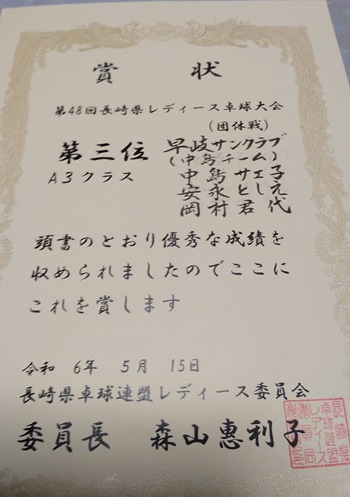 賞状
第48回長崎県レディース卓球大会
(団体戦)
第三位 早岐サンクラブ
(中島チーム)
A3クラス 中島サエ子
安永とし元
岡村君代
頭書のとおり優秀な成績を
収められましたのでここに
これを賞します
令和 6年 5月 15日
長崎県卓球連盟レディース委員会
委員長 森山惠利子